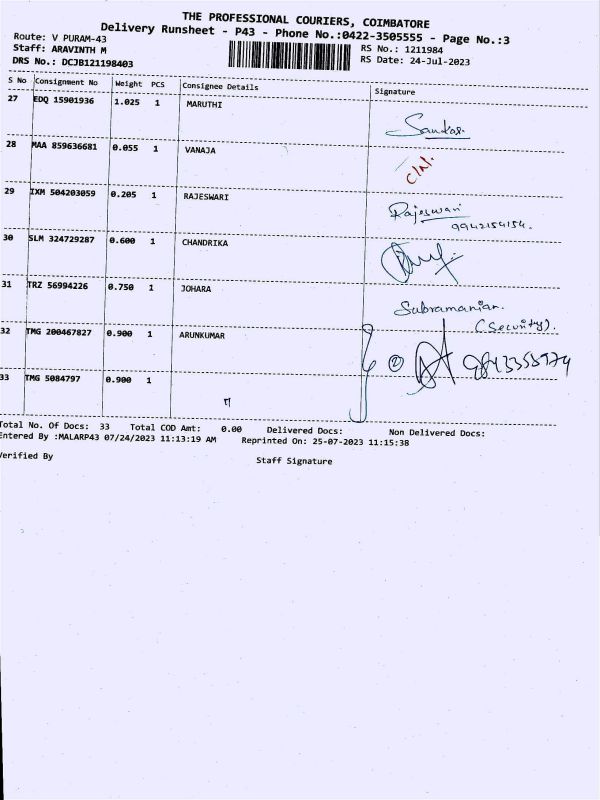 THE PROFESSIONAL COURIERS, COIMBATORE
Delivery Runsheet - P43 - Phone No.:0422-3505555 - Page No.:3
Route: V PURAM-43
Staff: ARAVINTH M
DRS No.: DCJB121198403
RS No.: 1211984
RS Date: 24-Jul-2023
S No Consignment No Weight PCS Consignee Details Signature
27 EDQ 15901936 1.025 1 MARUTHI
28 MAA 859636681 0.055 1 VANAJA
29 IXM 504203059 0.205 1 RAJESWARI Rajeswari
9942154154.
30 SLM 324729287 0.600 1 CHANDRIKA
31 TRZ 56994226 0.750 1 JOHARA Subramanian.
(Security).
32 TMG 200467827 0.900 1 ARUNKUMAR
33 TMG 5084797 0.900 1
Total No. Of Docs: 33 Total COD Amt: 0.00 Delivered Docs: Non Delivered Docs:
Entered By :MALARP43 07/24/2023 11:13:19 AM Reprinted On: 25-07-2023 11:15:38
Verified By Staff Signature